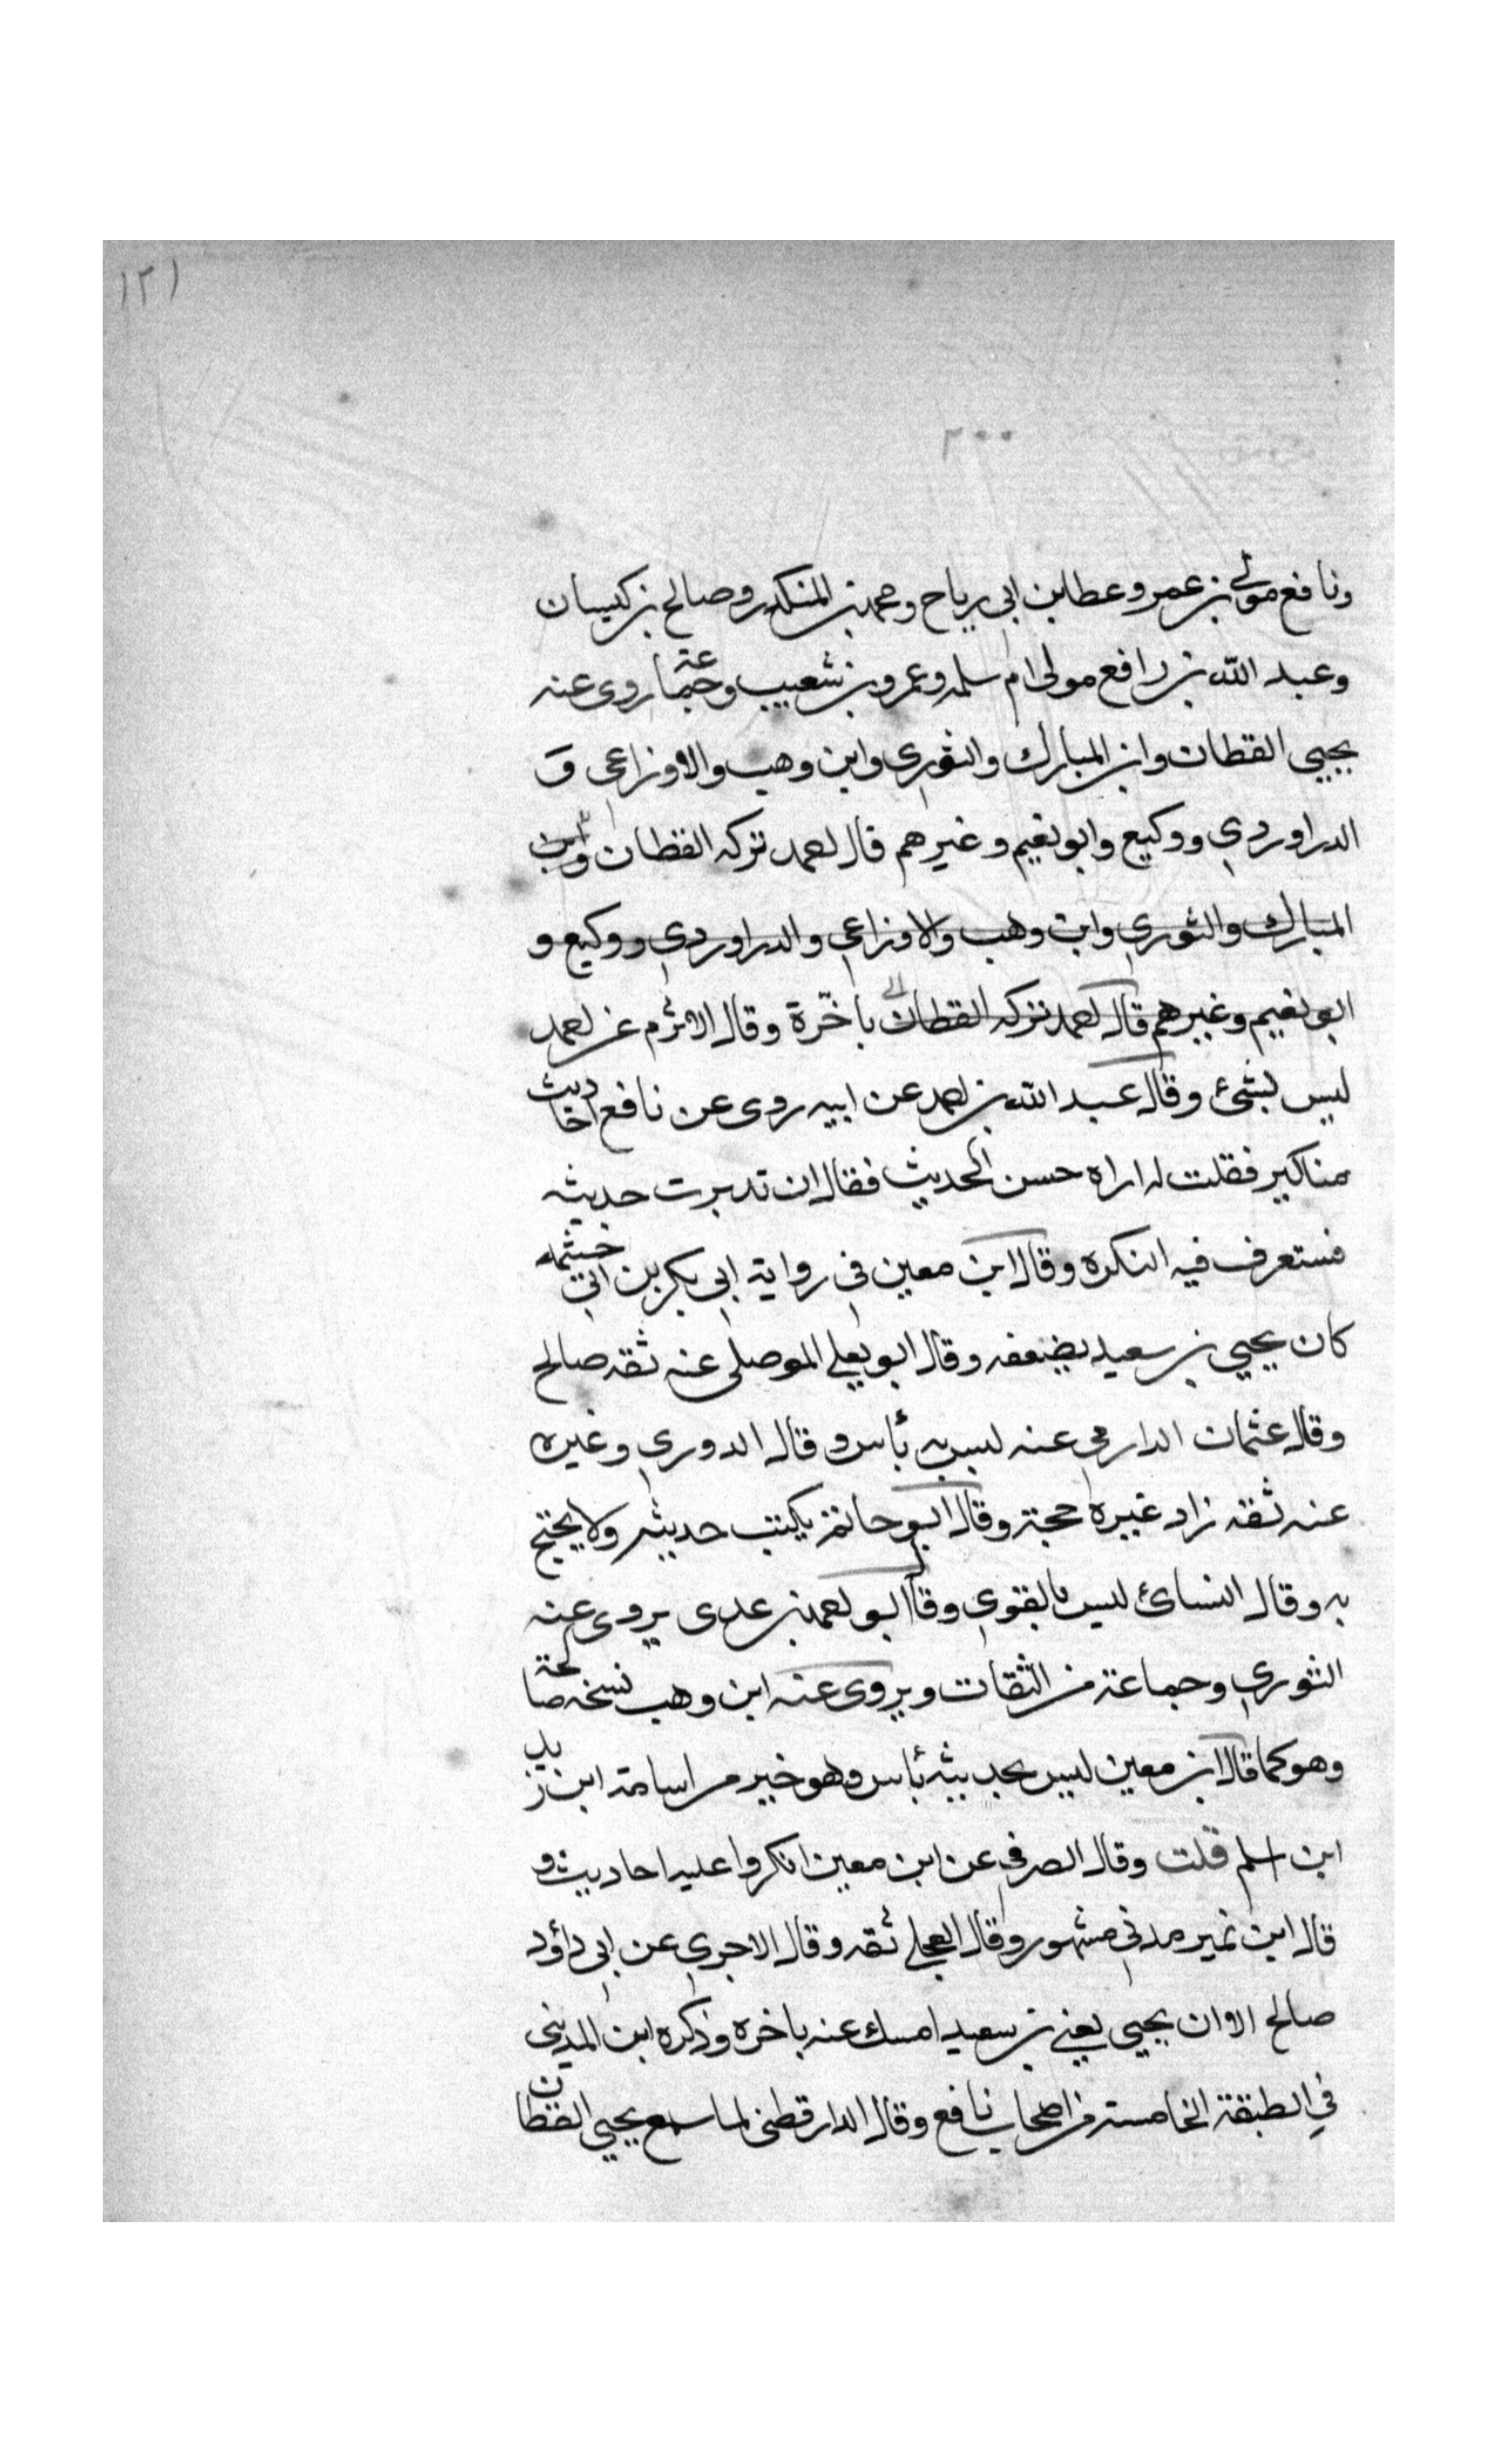 ١٢١
٢٠٠
ونافع مولى بن عمر وعطا بن ابى رباح ومحمد بن المنكدر وصالح بن كيسان
وعبد الله بن رافع مولى ام سلمه وعمرو بن شعيب وجماعة روى عنه
يحيى القطان وابن المبارك والثورى وابن وهب والاوزاعى و
الدراوردي ووكيع وابو نعيم وغيرهم قال احمد تركه القطان وابن
المبارك والثوري وابن وهب والاوزاعي والدراوردي ووكيع و
ابو نعيم وغيرهم قال احمد تركه القطان باخّرة وقال الاثرم عن احمد
ليس بشئ وقال عبد الله بن احمد عن ابيه روى عن نافع احاديث
مناكير فقلت له اراه حسن الحديث فقال ان تدبرت حديثه
فستعرف فيه النكره وقال ابن معين فى رواية ابى بكر بن ابي خيثمه
كان يحيي بن سعيد يضعفه وقال ابو يعلى الموصلى عنه ثقه صالح
وقال عثمان الدارمى عنه ليس به بأس وقال الدوري وغيره
عنه ثقه زاد غيره حجة وقال ابو حاتم يكتب حديثه ولا يحتج
به وقال النسائ ليس بالقوي وقال ابو احمد بن عدى يروى عنه
الثوري وجماعة من الثقات ويروى عنه ابن وهب نسخه صالحة
وهو كما قال ابن معين ليس بحديثه بأس وهو خير من اسامة ابن زيد
ابن اسلم قلت وقال الصرفى عن ابن معين انكروا عليه احاديث و
قال ابن نمير مدني مشهور وقال العجلي ثقه وقال الاجري عن ابى داؤد
صالح الا ان يحيى يعني بن سعيد امسك عنه باخره وذكره ابن المدينى
في الطبقة الخامسة من اصحاب نافع وقال الدارقطنى لما سمع يحيى القطان